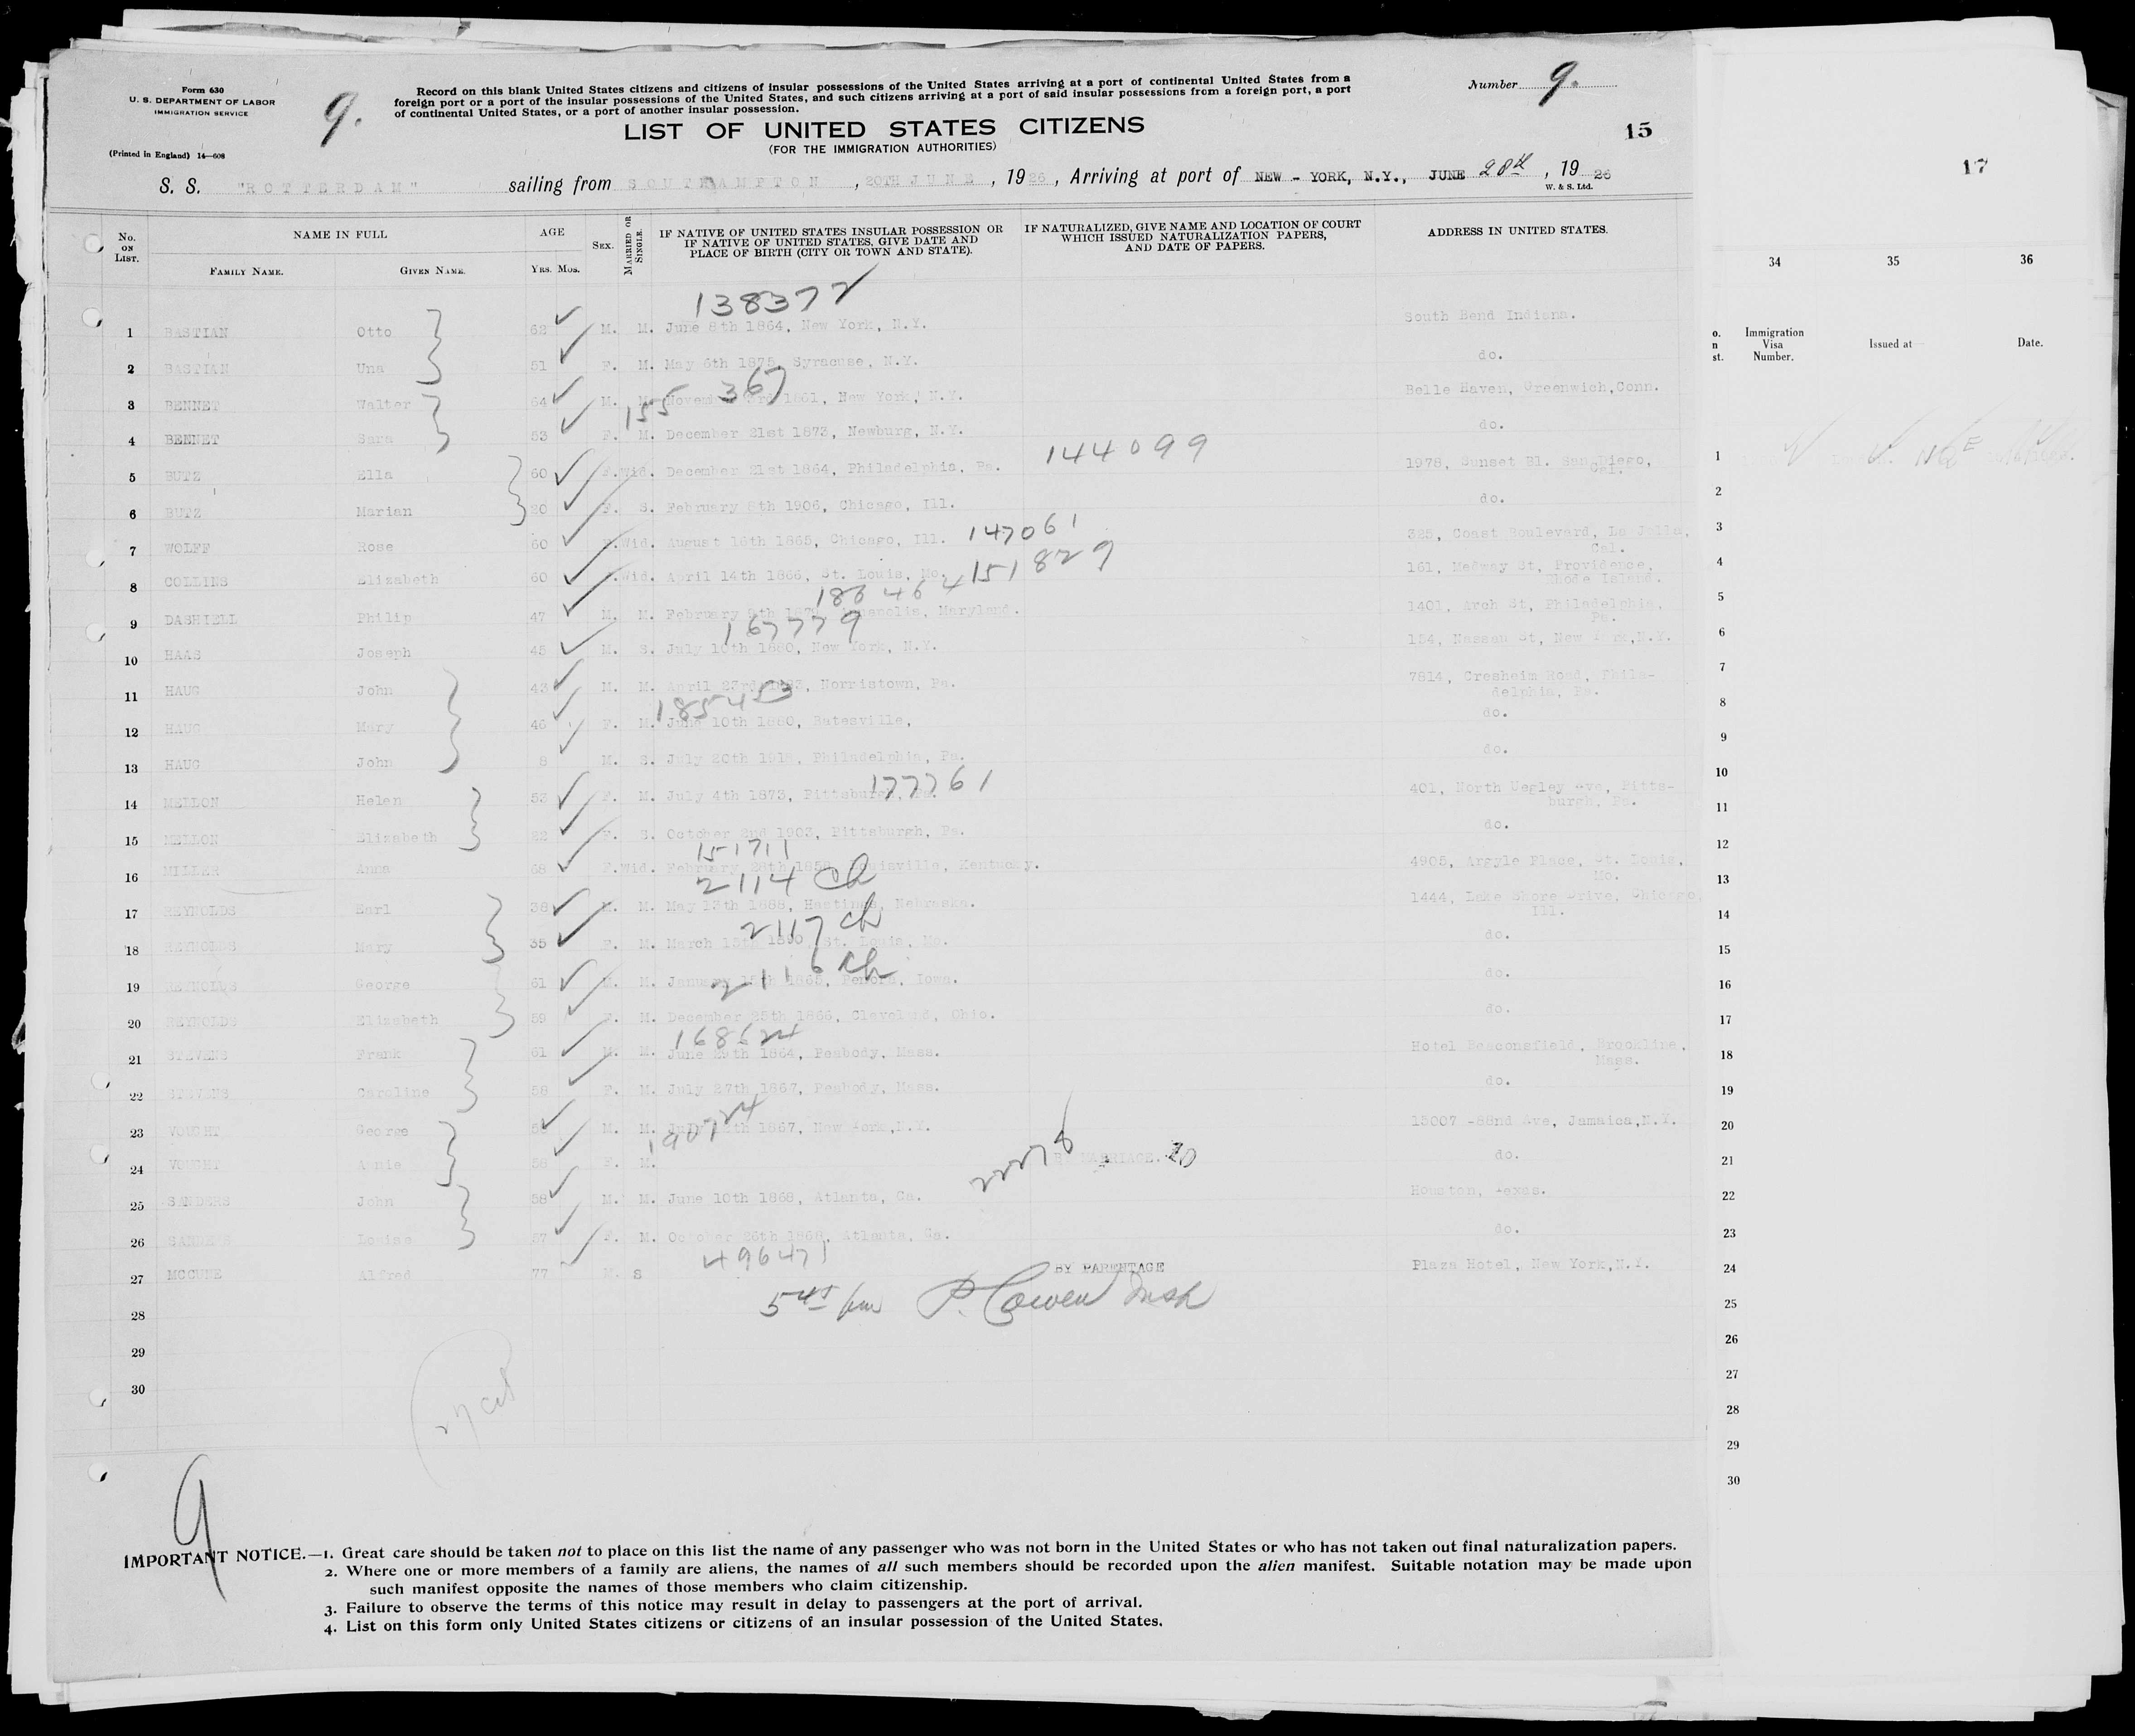 Form 630
U. S. DEPARTMENT OF LABOR
IMMIGRATION SERVICE
(Printed in England) 14—608
9.
Record on this blank United States citizens and citizens of insular possessions of the United States arriving at a port of continental United States from a
foreign port or a port of the insular possessions of the United States, and such citizens arriving at a port of said insular possessions from a foreign port, a port
of continental United States, or a port of another insular possession.
Number 9.
LIST OF UNITED STATES CITIZENS
(FOR THE IMMIGRATION AUTHORITIES)
15
S. S. "ROTTERDAM" sailing from SOUTHAMPTON, 20TH JUNE, 1926, Arriving at port of NEW - YORK, N.Y., JUNE 28th, 1926
W. & S. Ltd.
No. ON LIST. NAME IN FULL FAMILY NAME. GIVEN NAME. AGE YRS. MOS. SEX. MARRIED OR SINGLE. IF NATIVE OF UNITED STATES INSULAR POSSESSION OR IF NATIVE OF UNITED STATES, GIVE DATE AND PLACE OF BIRTH (CITY OR TOWN AND STATE). IF NATURALIZED, GIVE NAME AND LOCATION OF COURT WHICH ISSUED NATURALIZATION PAPERS, AND DATE OF PAPERS. ADDRESS IN UNITED STATES.
138372
1 BASTIAN Otto 62 M. M. June 8th 1864, New York, N.Y. South Bend Indiana.
2 BASTIAN Una 51 F. M. May 6th 1875, Syracuse, N.Y. do.
155367
3 BENNET Walter 64 M. M. November 3rd 1861, New York, N.Y. Belle Haven, Greenwich, Conn.
4 BENNET Sara 53 F. M. December 21st 1873, Newburg, N.Y. do.
144099
5 BUTZ Ella 60 F. Wid. December 21st 1864, Philadelphia, Pa. 1978, Sunset Bl. San Diego, Cal.
6 BUTZ Marian 20 F. S. February 8th 1906, Chicago, Ill. do.
7 WOLFF Rose 60 F. Wid. August 16th 1865, Chicago, Ill. 147061 325, Coast Boulevard, La Jolla, Cal.
8 COLLINS Elizabeth 60 F. Wid. April 14th 1866, St. Louis, Mo. 151829 161, Medway St, Providence, Rhode Island.
9 DASHIELL Philip 47 M. M. February 9th Annapolis, Maryland. 1401, Arch St, Philadelphia, Pa.
167779
10 HAAS Joseph 45 M. S. July 10th 1880, New York, N.Y. 154, Nassau St, New York, N.Y.
11 HAUG John 43 M. M. April 23rd 1883, Norristown, Pa. 7814, Cresheim Road, Phila-delphia, Pa.
185453
12 HAUG Mary 46 F. M. June 10th 1880, Batesville, do.
13 HAUG John 8 M. S. July 20th 1918, Philadelphia, Pa. do.
177761
14 MELLON Helen 53 F. M. July 4th 1873, Pittsburgh, Pa. 401, North Negley Ave, Pitts-burgh, Pa.
15 MELLON Elizabeth 22 F. S. October 2nd 1903, Pittsburgh, Pa. do.
151711
16 MILLER Anna 68 F. Wid. February 28th 1858, Louisville, Kentucky. 4905, Argyle Place, St. Louis, Mo.
2114 Ch
17 REYNOLDS Earl 38 M. M. May 13th 1888, Hastings, Nebraska. 1444, Lake Shore Drive, Chicago, Ill.
2117 ch
18 REYNOLDS Mary 35 F. M. March 15th 1890, St. Louis, Mo. do.
2116 ch
19 REYNOLDS George 61 M. M. January 1865, Iowa. do.
20 REYNOLDS Elizabeth 59 F. M. December 25th 1866, Cleveland, Ohio. do.
21 STEVENS Frank 61 M. M. June 29th 1864, Peabody, Mass. Hotel Beaconsfield, Brookline, Mass.
22 STEVENS Caroline 58 F. M. July 27th 1867, Peabody, Mass. do.
23 VOUGHT George M. M. July 1867, New York, N.Y. 15007 -88nd Ave, Jamaica, N.Y.
24 VOUGHT Annie 58 F. M. BY MARRIAGE. do.
25 SANDERS John 58 M. M. June 10th 1868, Atlanta, Ga. Houston, Texas.
26 SANDERS Louise 57 F. M. October 26th 1868, Atlanta, Ga. do.
496471
27 MCCUNE Alfred 77 M. S BY PARENTAGE Plaza Hotel, New York, N.Y.
5 45 pm P. Cowen Insp
28
29
30
27 cit
9
IMPORTANT NOTICE.—1. Great care should be taken not to place on this list the name of any passenger who was not born in the United States or who has not taken out final naturalization papers.
2. Where one or more members of a family are aliens, the names of all such members should be recorded upon the alien manifest. Suitable notation may be made upon
such manifest opposite the names of those members who claim citizenship.
3. Failure to observe the terms of this notice may result in delay to passengers at the port of arrival.
4. List on this form only United States citizens or citizens of an insular possession of the United States.
17
34 35 36
o. n st. Immigration Visa Number. Issued at Date.
1
2
3
4
5
6
7
8
9
10
11
12
13
14
15
16
17
18
19
20
21
22
23
24
25
26
27
28
29
30